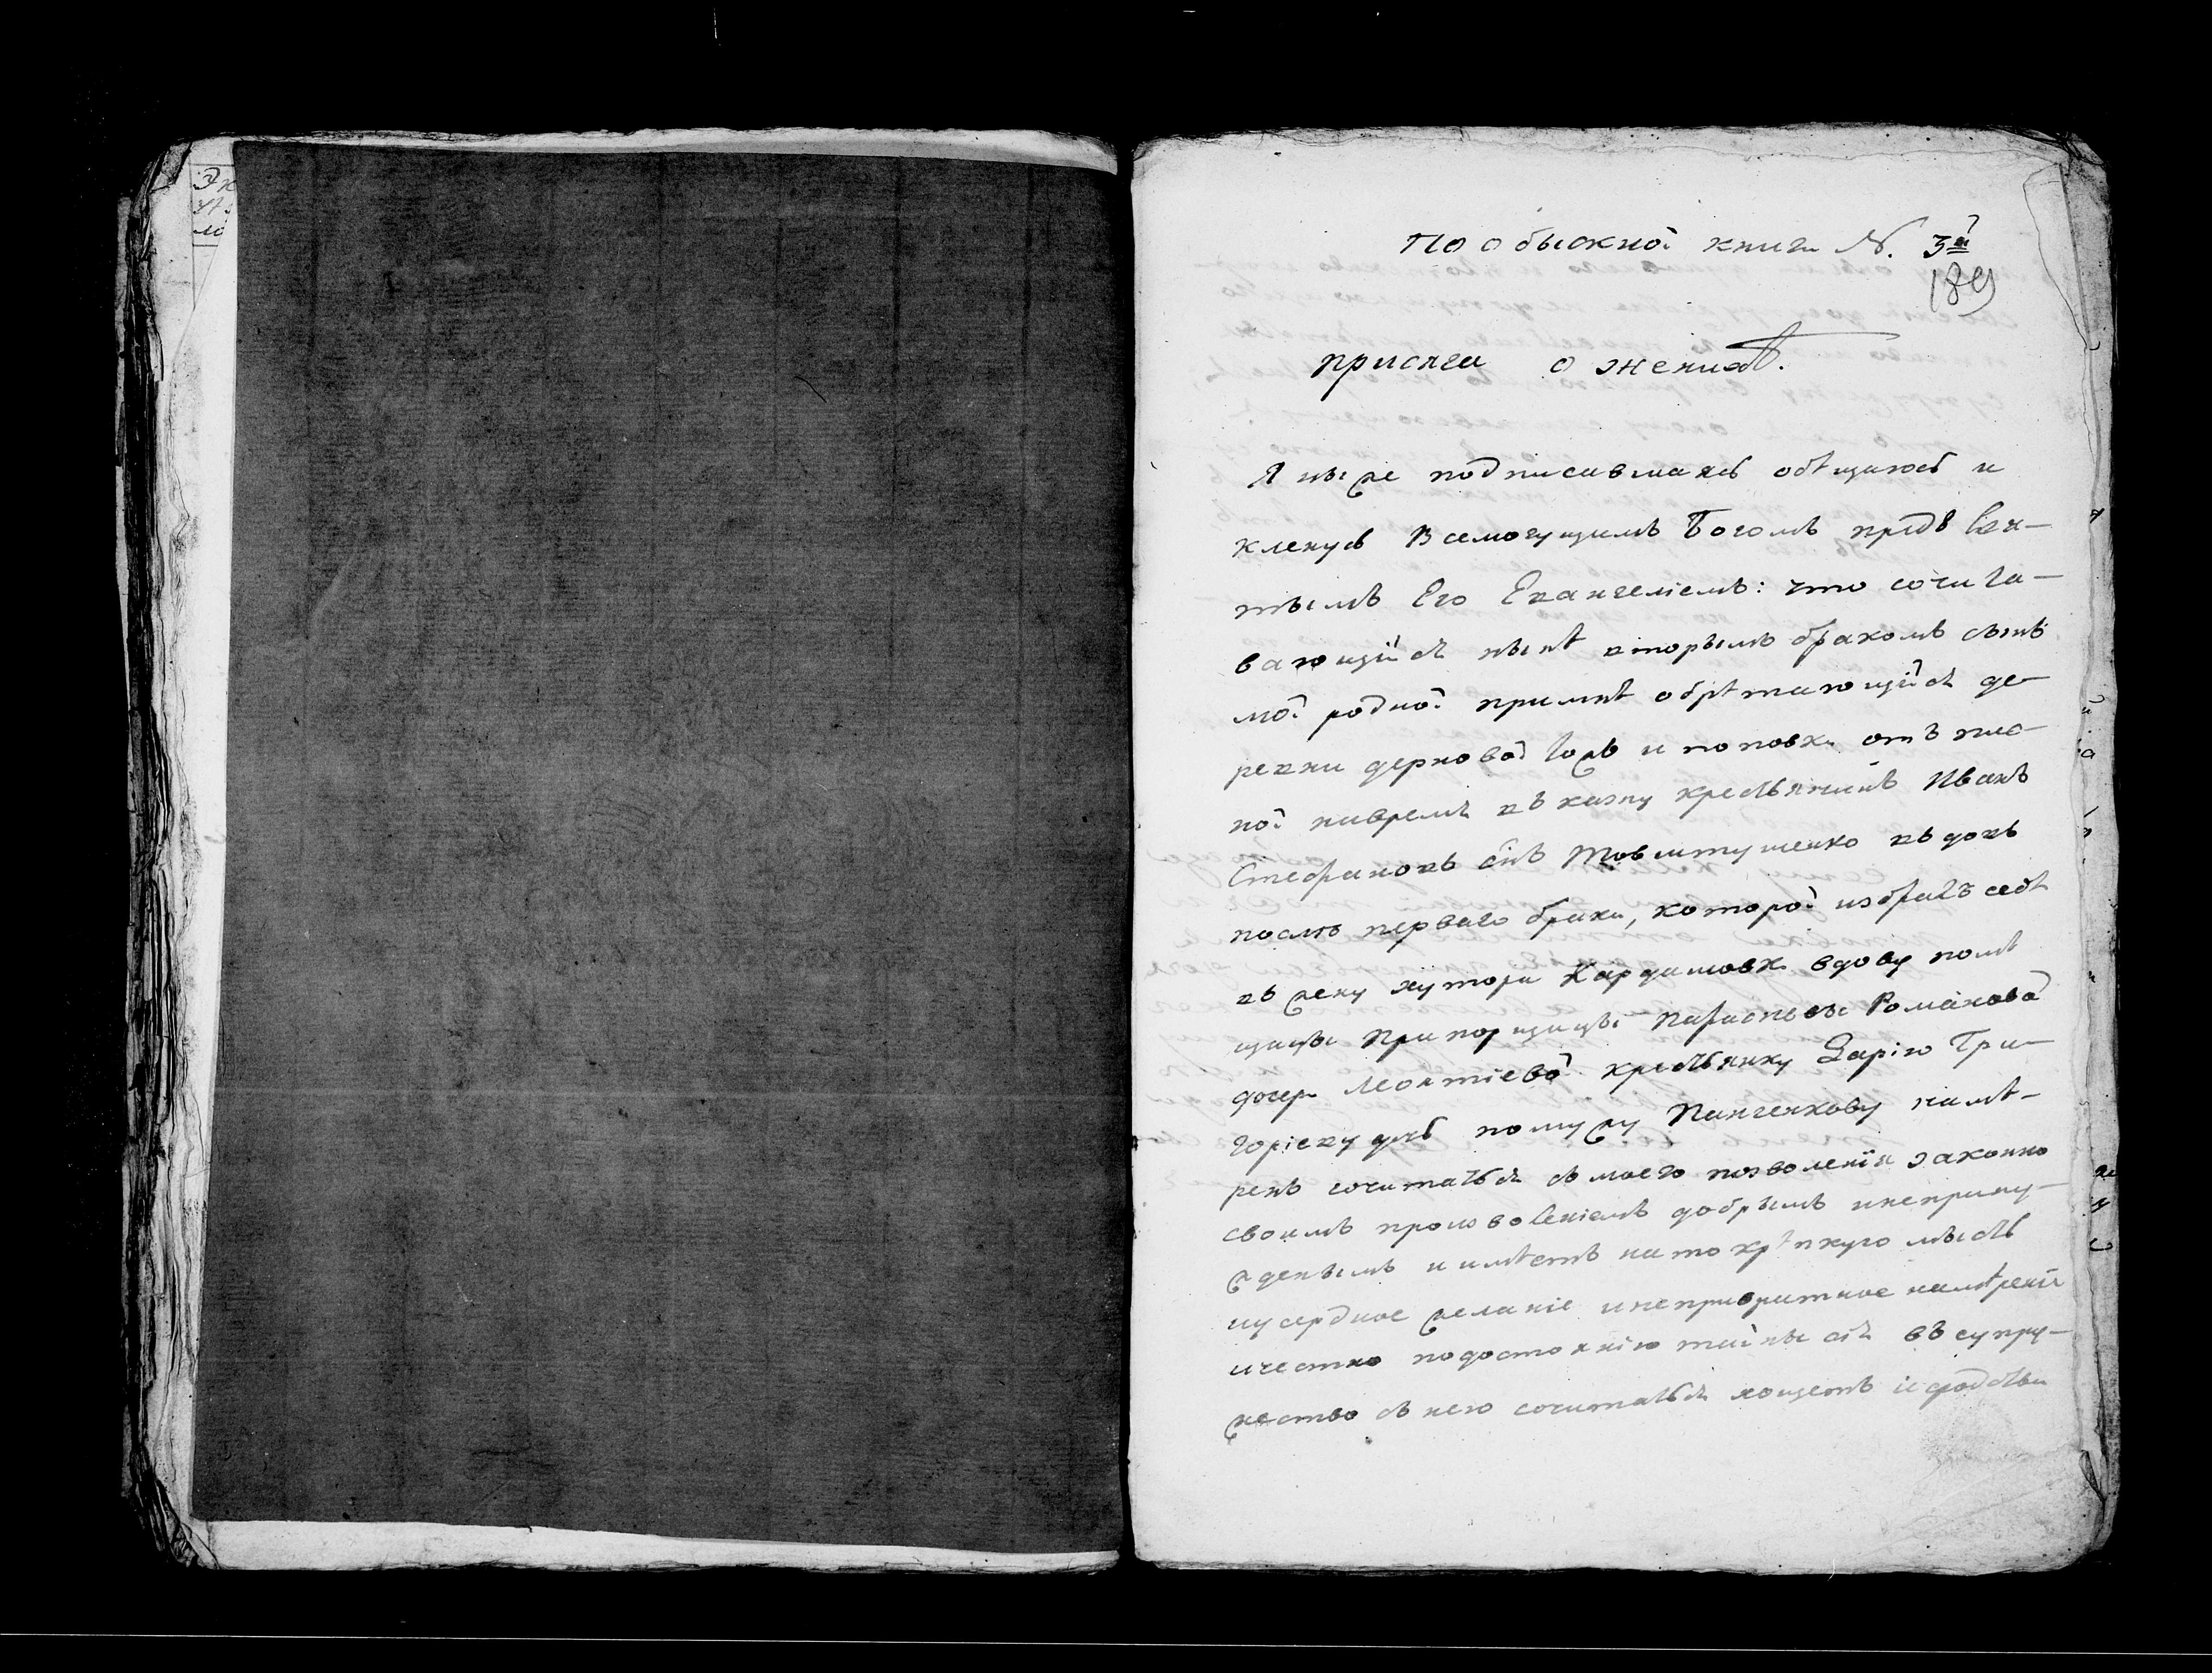 По обыскной книги N. 3й
189
присяга о женихѣ.
Я ниже подписавшаясь обѣщаюсь и
кленусь Всемогущимъ Богомъ предъ Свя-
тымъ Его Евангелiемъ: что сочита-
вающiйся нынѣ вторымъ бракомъ сынъ
мой родной примнѣ обрѣтающiйся де-
ревни дерновой тожъ и поповки отъ
ной въ казну крестьянинъ Иванъ
Стефановъ Снъ Товштушенко вдовъ
послѣ перваго брака, которой избралъ себѣ
въ жену хутора Кардашовки вдову помѣ
щицы Прапорщицы Парасковьи Романовой
дочери Леонтiевой крестьянку Дарiю Гри-
горiеву дчь помужу Панченкову намѣ-
ренъ сочитаться съ моего позволенiя законно
своимъ произволенiемъ добрымъ инеприну-
жденымъ и имѣетъ на то крѣпкую мысль
иусердное желанiе инепривратное намѣренiе
ичестно подостоянiю тайны сiя въ супру-
жество съ нею сочитаться хощетъ и сродства